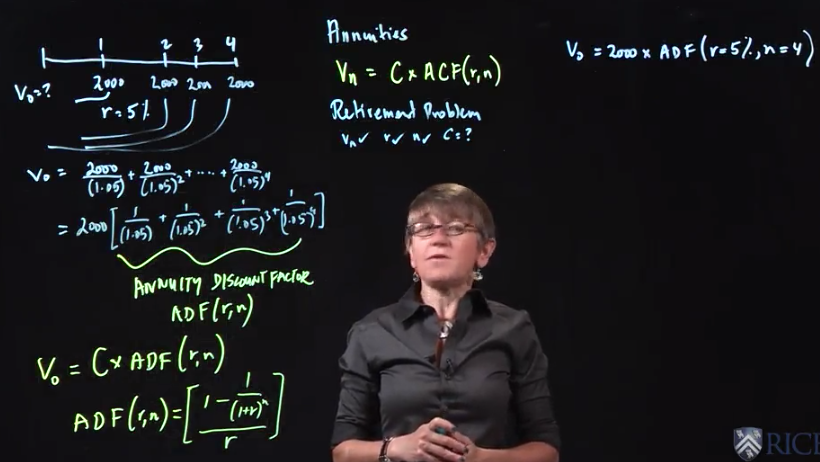 1 2 3 4
V₀=? 2000 2000 2000 2000
r=5%
V₀ = 2000/(1.05) + 2000/(1.05)² + ···· + 2000/(1.05)⁴
= 2000[1/(1.05) + 1/(1.05)² + 1/(1.05)³ + 1/(1.05)⁴]
ANNUITY DISCOUNT FACTOR
ADF(r,n)
V₀ = C x ADF(r,n)
ADF(r,n) = [1 - 1/(1+r)ⁿ / r]
Annuities
Vₙ = C x ACF(r,n)
Retirement Problem
Vₙ✓ r✓ n✓ C=?
V₀ = 2000 x ADF(r=5%, n=4)
RICE